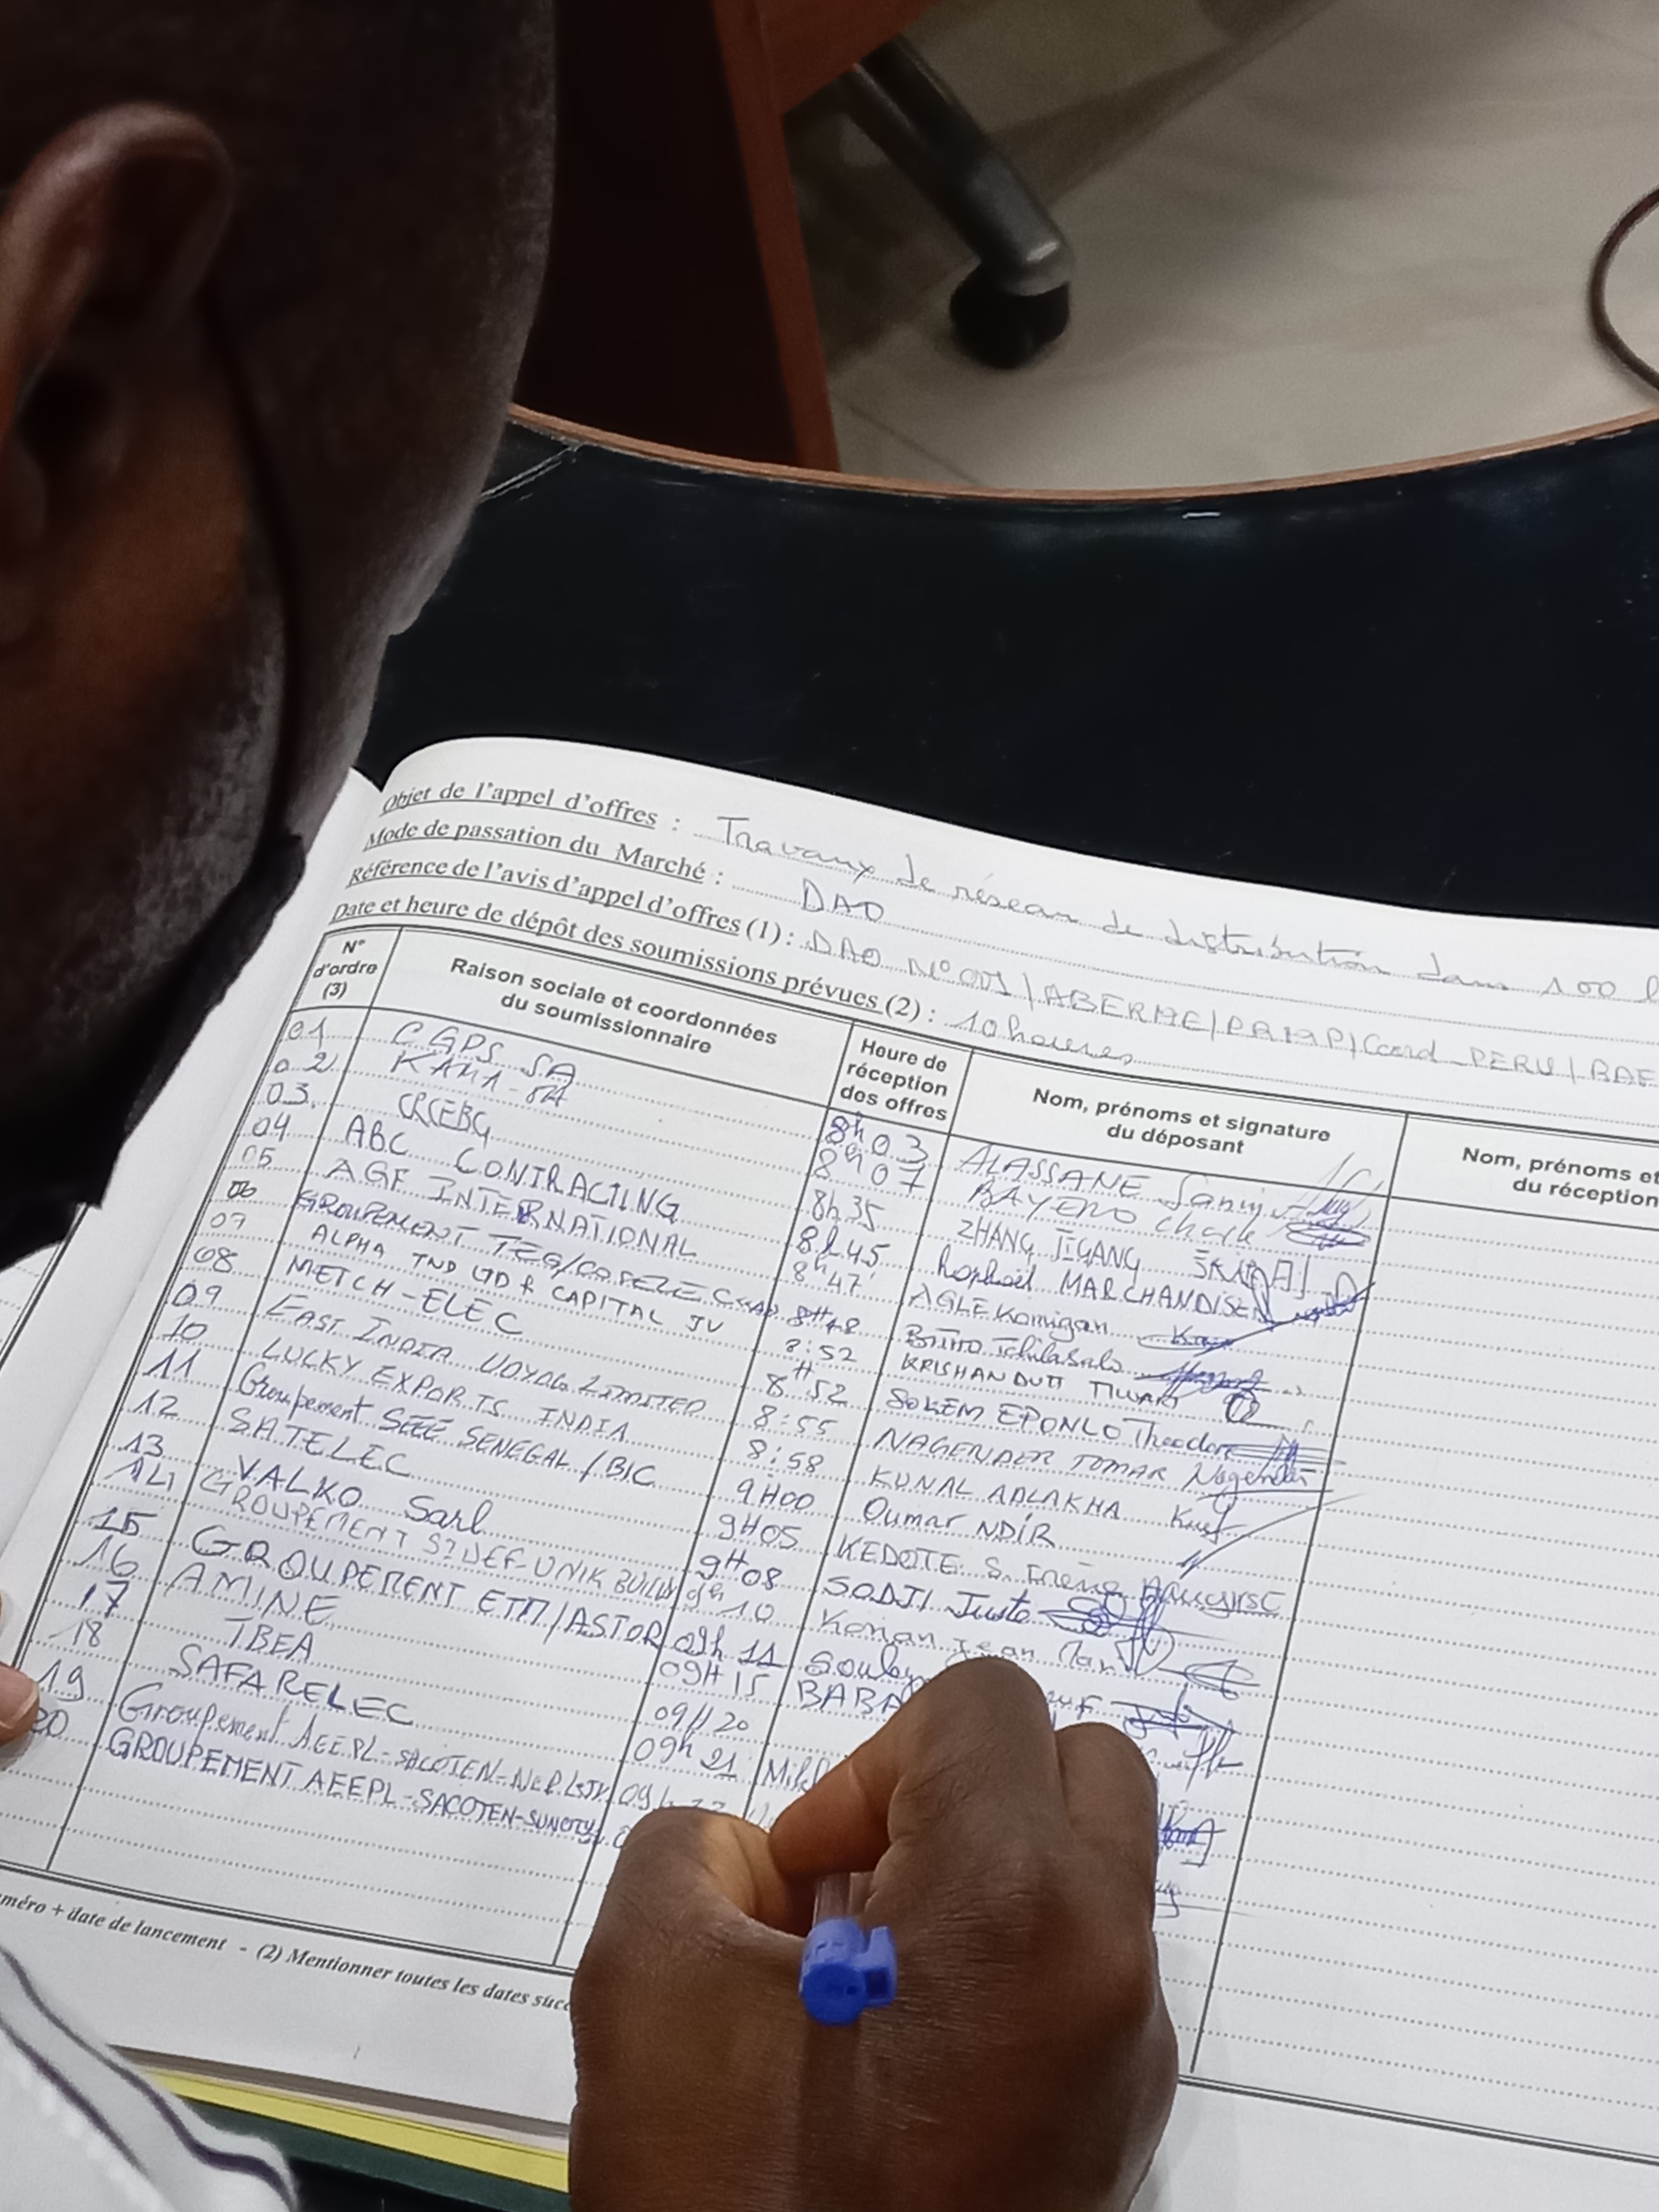 Objet de l'appel d'offres : Travaux de réseau de distribution dans 100 l
Mode de passation du Marché : DAO
Référence de l'avis d'appel d'offres (1) : DAO N° 001/ABERME/PRMP/Coord_PERU/
Date et heure de dépôt des soumissions prévues (2) : 10 heures
N° d'ordre (3) Raison sociale et coordonnées du soumissionnaire Heure de réception des offres Nom, prénoms et signature du déposant Nom, prénoms et du réception
01 CGPS SA 8h03 ALASSANE Sanni
02 KAMA-SA 8h07 BAYERO
03. CRCEBG 8h35 ZHANG JIGANG
04 ABC CONTRACTING 8h45 Raphaël MARCHANDISE
05 AGF INTERNATIONAL 8h47' AGLE Komigan
06 GROUPEMENT TEG/COFELEC 8H48 Bruno
07 ALPHA TND GDR CAPITAL JV 8:52 KRISHAN DUTT TIWARI
08 METCH-ELEC 8H52 SOKEM EPONLO Theodore
09 EAST INDIA UDYOG LIMITED 8:55 NAGENDER TOMAR Nagender
10 LUCKY EXPORTS INDIA 8:58 KUNAL ADLAKHA
11 Groupement SEEE SENEGAL/BIC 9H00 Oumar NDIR
12 SATELEC 9H05 KEDOTE S. Irénée
13 VALKO Sarl 9H08 SODJI Juste
14 GROUPEMENT 9h10 Konan Jean
15 GROUPEMENT ETM/ASTOR 09h11
16 AMINE 09H15 BABA
17 TBEA 09H20
18 SAFARELEC 09h21
19 Groupement AEEPL-SACOTEN
20 GROUPEMENT AEEPL-SACOTEN-SUNCITY
méro + date de lancement - (2) Mentionner toutes les dates succ